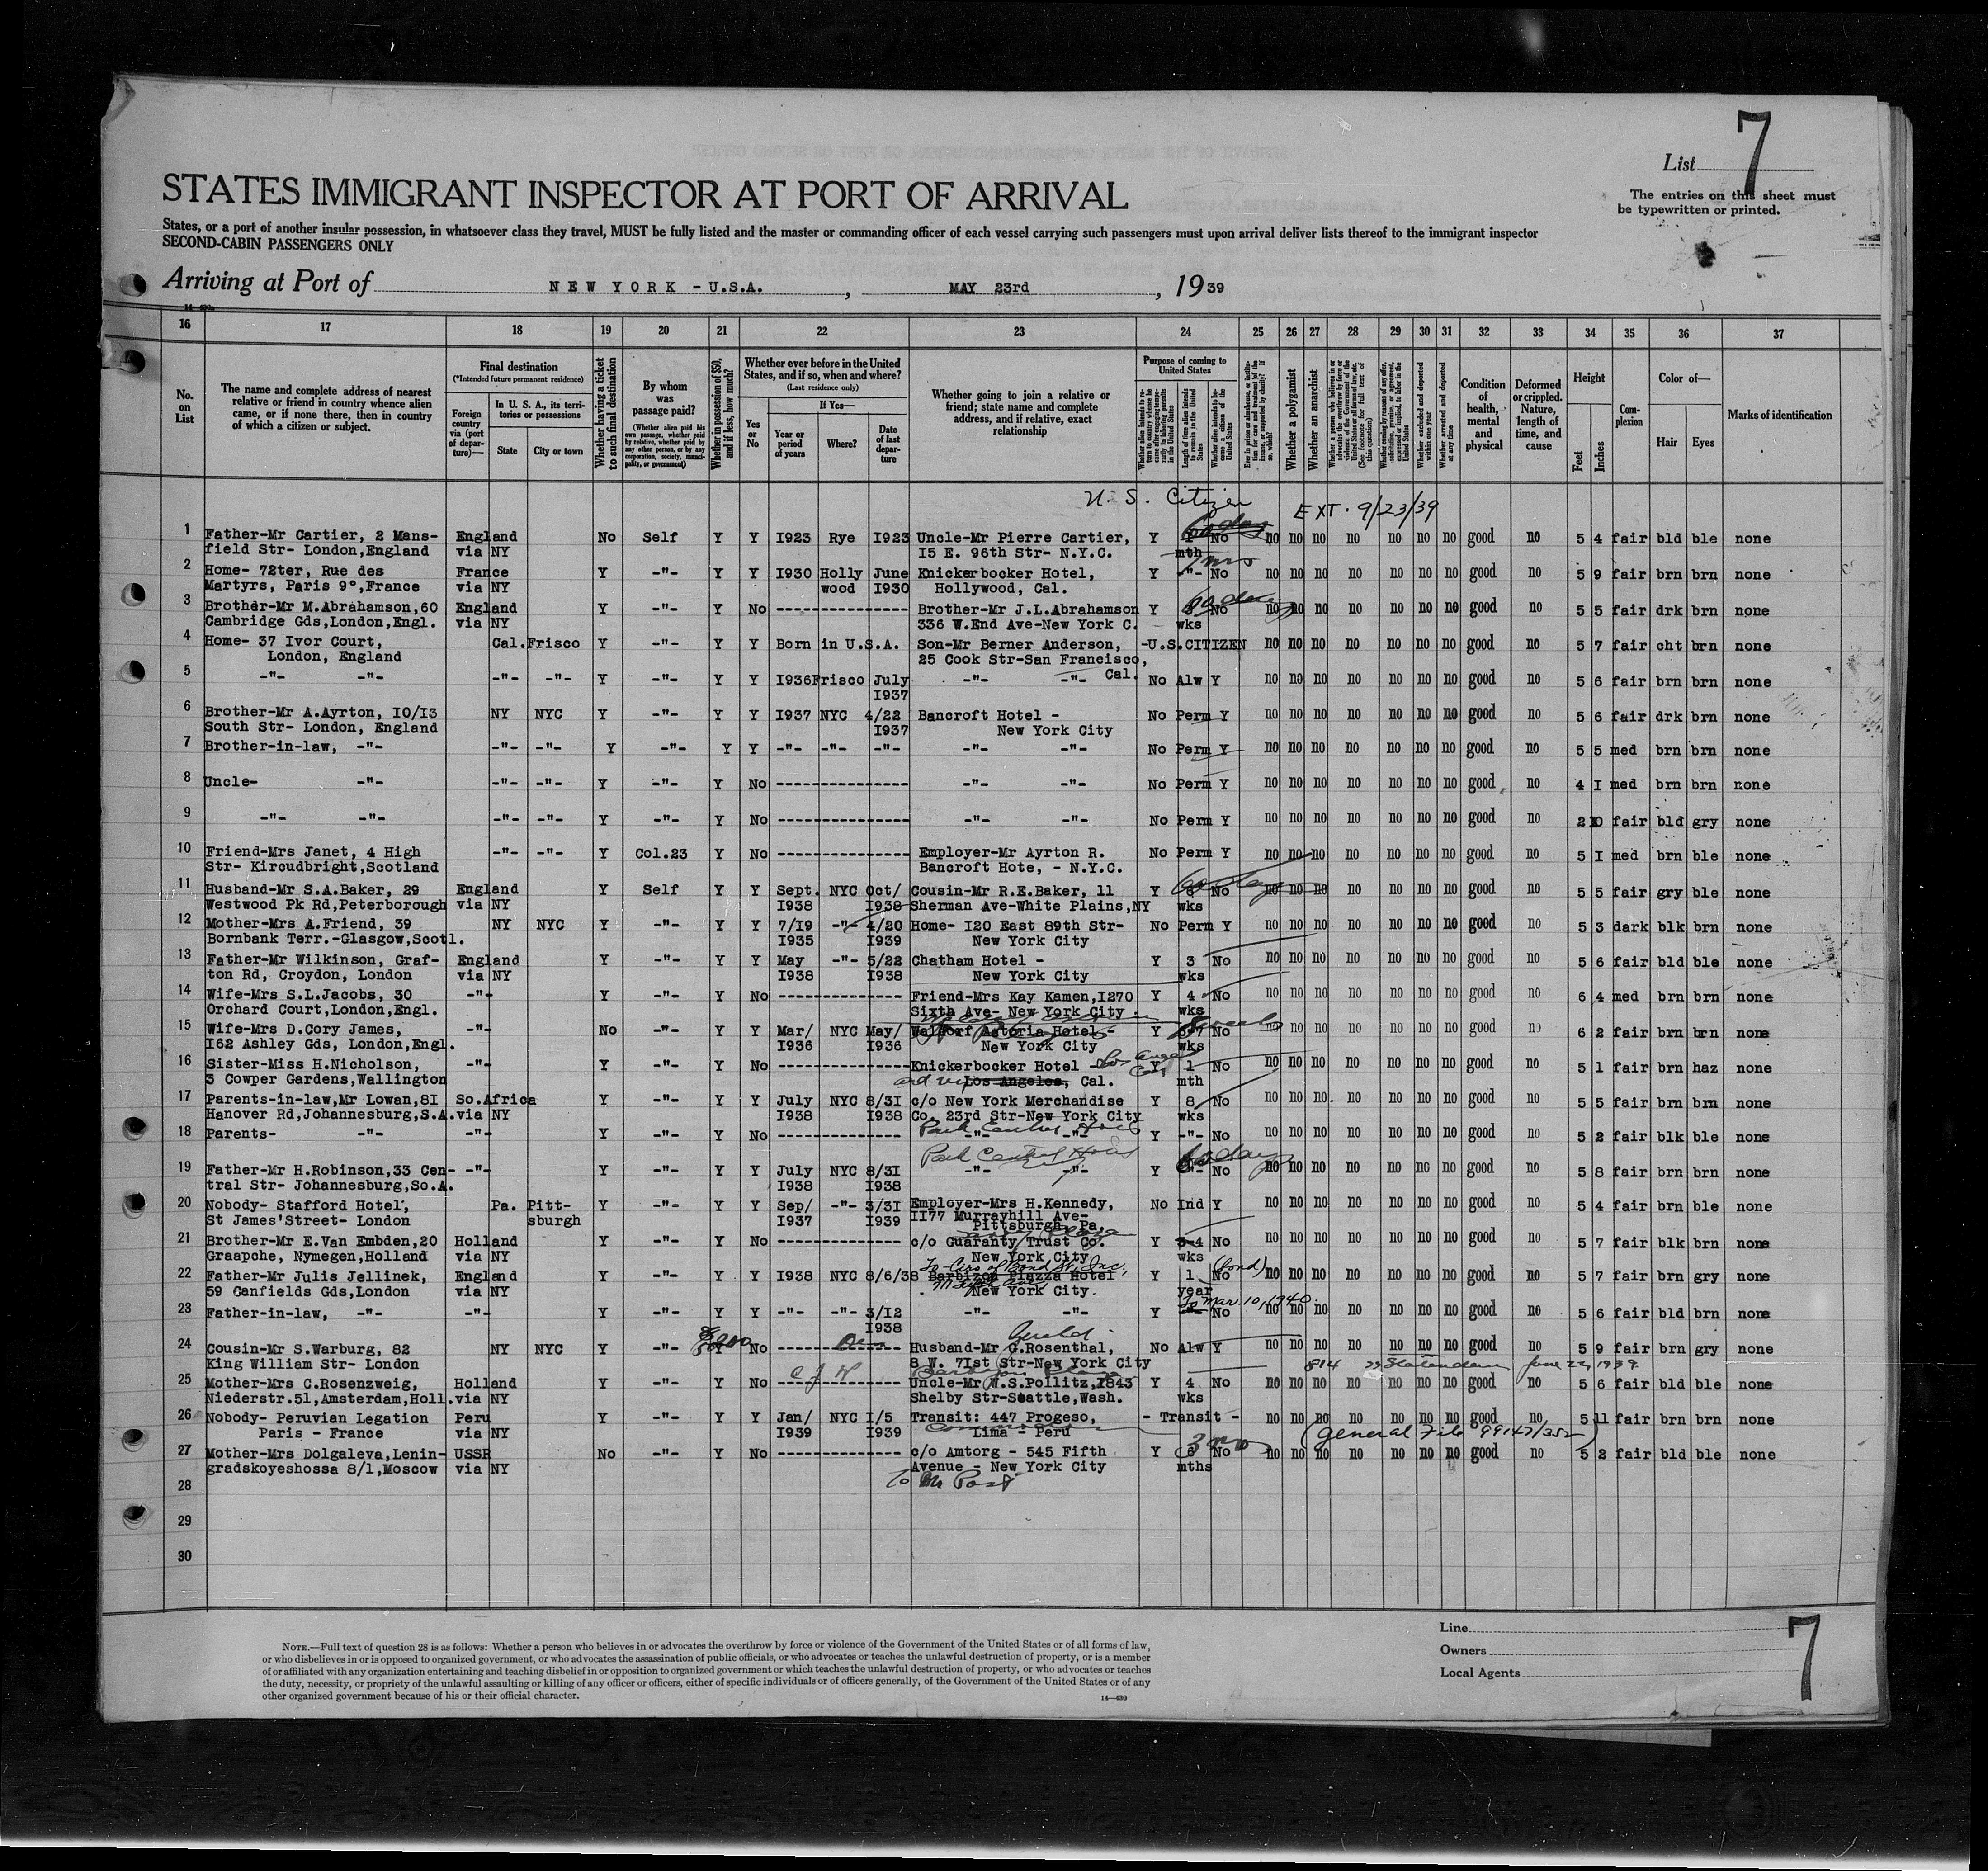 7
List
The entries on this sheet must
be typewritten or printed.
STATES IMMIGRANT INSPECTOR AT PORT OF ARRIVAL
States, or a port of another insular possession, in whatsoever class they travel, MUST be fully listed and the master or commanding officer of each vessel carrying such passengers must upon arrival deliver lists thereof to the immigrant inspector
SECOND-CABIN PASSENGERS ONLY
Arriving at Port of NEW YORK - U.S.A. , MAY 23rd , 1939
16 17 18 19 20 21 22 23 24 25 26 27 28 29 30 31 32 33 34 35 36 37
No. on List
The name and complete address of nearest relative or friend in country whence alien came, or if none there, then in country of which a citizen or subject.
Final destination
(*Intended future permanent residence)
Foreign country via (port of departure)—
In U. S. A., its territories or possessions
State
City or town
Whether having a ticket to such final destination
By whom was passage paid?
(Whether alien paid his own passage, whether paid by relative, whether paid by any other person, or by any corporation, society, municipality, or government)
Whether in possession of $50, and if less, how much?
Whether ever before in the United States, and if so, when and where?
(Last residence only)
Yes or No
If Yes—
Year or period of years
Where?
Date of last departure
Whether going to join a relative or friend; state name and complete address, and if relative, exact relationship
Purpose of coming to United States
Length of time alien intends to remain in the United States
Whether alien intends to become a citizen of the United States
Whether a polygamist
Whether an anarchist
Whether excluded and deported within one year
Whether arrested and deported at any time
Condition of health, mental and physical
Deformed or crippled. Nature, length of time, and cause
Height
Feet
Inches
Complexion
Color of—
Hair
Eyes
Marks of identification
U. S. Citizen
EXT. 9/23/39
1 Father-Mr Cartier, 2 Mans- England No Self Y Y I923 Rye I923 Uncle-Mr Pierre Cartier, Y No no no no no no no no good no 5 4 fair bld ble none
field Str- London,England via NY I5 E. 96th Str- N.Y.C. mth
2 Home- 72ter, Rue des France Y -"- Y Y I930 Holly June Knickerbocker Hotel, Y -"- No no no no no no no no good no 5 9 fair brn brn none
Martyrs, Paris 9°,France via NY wood I930 Hollywood, Cal.
3 Brother-Mr M.Abrahamson,60 England Y -"- Y No Brother-Mr J.L.Abrahamson Y No no no no no no no no good no 5 5 fair drk brn none
Cambridge Gds,London,Engl. via NY 336 W.End Ave-New York C. wks
4 Home- 37 Ivor Court, Cal.Frisco Y -"- Y Y Born in U.S.A. Son-Mr Berner Anderson, -U.S.CITIZEN no no no no no no no good no 5 7 fair cht brn none
London, England 25 Cook Str-San Francisco,
Cal.
5 -"- -"- -"- -"- Y -"- Y Y I936Frisco July -"- -"- No Alw Y no no no no no no no good no 5 6 fair brn brn none
I937
6 Brother-Mr A.Ayrton, IO/I3 NY NYC Y -"- Y Y I937 NYC 4/22 Bancroft Hotel - No Perm Y no no no no no no no good no 5 6 fair drk brn none
South Str- London, England I937 New York City
7 Brother-in-law, -"- -"- -"- Y -"- Y Y -"- -"- -"- -"- -"- No Perm Y no no no no no no no good no 5 5 med brn brn none
8 Uncle- -"- -"- -"- Y -"- Y No -"- -"- No Perm Y no no no no no no no good no 4 I med brn brn none
9 -"- -"- -"- -"- Y -"- Y No -"- -"- No Perm Y no no no no no no no good no 2 fair bld gry none
10 Friend-Mrs Janet, 4 High -"- -"- Y Col.23 Y No Employer-Mr Ayrton R. No Perm Y no no no no no no no good no 5 I med brn ble none
Str- Kircudbright,Scotland Bancroft Hote, - N.Y.C.
11 Husband-Mr S.A.Baker, 29 England Y Self Y Y Sept. NYC Oct/ Cousin-Mr R.E.Baker, 11 Y No no no no no no no no good no 5 5 fair gry ble none
Westwood Pk Rd,Peterborough via NY I938 I938 Sherman Ave-White Plains,NY wks
12 Mother-Mrs A.Friend, 39 NY NYC Y -"- Y Y 7/I9 -"- 4/20 Home- I20 East 89th Str- No Perm Y no no no no no no no good no 5 3 dark blk brn none
Bornbank Terr.-Glasgow,Scotl. I935 I939 New York City
13 Father-Mr Wilkinson, Graf- England Y -"- Y Y May -"- 5/22 Chatham Hotel - Y 3 No no no no no no no no good no 5 6 fair bld ble none
ton Rd, Croydon, London via NY I938 I938 New York City wks
14 Wife-Mrs S.L.Jacobs, 30 -"- Y -"- Y No Friend-Mrs Kay Kamen,I270 Y 4 No no no no no no no no good no 6 4 med brn brn none
Orchard Court,London,Engl. Sixth Ave- New York City wks
15 Wife-Mrs D.Cory James, -"- No -"- Y Y Mar/ NYC May/ Waldorf Astoria Hotel - Y No no no no no no no no good no 6 2 fair brn brn none
I62 Ashley Gds, London,Engl. I936 I936 New York City wks
16 Sister-Miss H.Nicholson, -"- Y -"- Y No Knickerbocker Hotel Los Angeles Cal. Y 1 No no no no no no no no good no 5 1 fair brn haz none
3 Cowper Gardens,Wallington Los Angeles, Cal. mth
17 Parents-in-law,Mr Lowan,8I So.Africa Y -"- Y Y July NYC 8/3I c/o New York Merchandise Y 8 No no no no no no no no good no 5 5 fair brn brn none
Hanover Rd,Johannesburg,S.A. via NY I938 I938 Co. 23rd Str-New York City wks
18 Parents- -"- -"- Y -"- Y No Park Central Hotel -"- -"- Y -"- No no no no no no no no good no 5 2 fair blk ble none
Park Central Hotel
19 Father-Mr H.Robinson,33 Cen- -"- Y -"- Y Y July NYC 8/3I -"- -"- Y 60 days No no no no no no no no good no 5 8 fair brn brn none
tral Str- Johannesburg,So.A. I938 I938
20 Nobody- Stafford Hotel, Pa. Pitt- Y -"- Y Y Sep/ -"- 3/3I Employer-Mrs H.Kennedy, No Ind Y no no no no no no no good no 5 4 fair brn ble none
St James'Street- London sburgh I937 I939 II77 Murrayhill Ave-
Pittsburgh,Pa.
21 Brother-Mr E.Van Embden,20 Holland Y -"- Y No c/o Guaranty Trust Co. Y 3-4 No no no no no no no no good no 5 7 fair blk brn none
Graapche, Nymegen,Holland via NY New York City wks
22 Father-Mr Julis Jellinek, England Y -"- Y Y I938 NYC 8/6/38 To Ciro of Bond St, Inc, Barbizon Plazza Hotel Y 1 No (bond) no no no no no no no good no 5 7 fair brn gry none
59 Canfields Gds,London via NY New York City. year
23 Father-in-law, -"- -"- Y -"- Y Y -"- -"- 3/I2 -"- -"- Y To Mar. 10, 1940. No no no no no no no no good no 5 6 fair bld brn none
I938
24 Cousin-Mr S.Warburg, 82 NY NYC Y -"- Y No Gerald Husband-Mr G.Rosenthal, No Alw Y no no no no no no no good no 5 9 fair brn gry none
King William Str- London 8 W. 7Ist Str-New York City 814 SS Statendam June 22, 1939.
25 Mother-Mrs C.Rosenzweig, Holland Y -"- Y No Uncle-Mr W.S.Pollitz,I843 Y 4 No no no no no no no no good no 5 6 fair bld ble none
Niederstr.51,Amsterdam,Holl. via NY Shelby Str-Seattle,Wash. wks
26 Nobody- Peruvian Legation Peru Y -"- Y Y Jan/ NYC I/5 Transit: 447 Progeso, - Transit - no no no no no no no good no 5 11 fair brn brn none
Paris - France via NY I939 I939 Lima - Peru (General File 99147/352)
27 Mother-Mrs Dolgaleva,Lenin- USSR No -"- Y No c/o Amtorg - 545 Fifth Y 3 mo No no no no no no no no good no 5 2 fair bld ble none
gradskoyeshossa 8/1,Moscow via NY Avenue - New York City mths
28
29
30
NOTE.—Full text of question 28 is as follows: Whether a person who believes in or advocates the overthrow by force or violence of the Government of the United States or of all forms of law,
or who disbelieves in or is opposed to organized government, or who advocates the assassination of public officials, or who advocates or teaches the unlawful destruction of property, or is a member
of or affiliated with any organization entertaining and teaching disbelief in or opposition to organized government or which teaches the unlawful destruction of property, or who advocates or teaches
the duty, necessity, or propriety of the unlawful assaulting or killing of any officer or officers, either of specific individuals or of officers generally, of the Government of the United States or of any
other organized government because of his or their official character.
14—430
Line
Owners
Local Agents
7